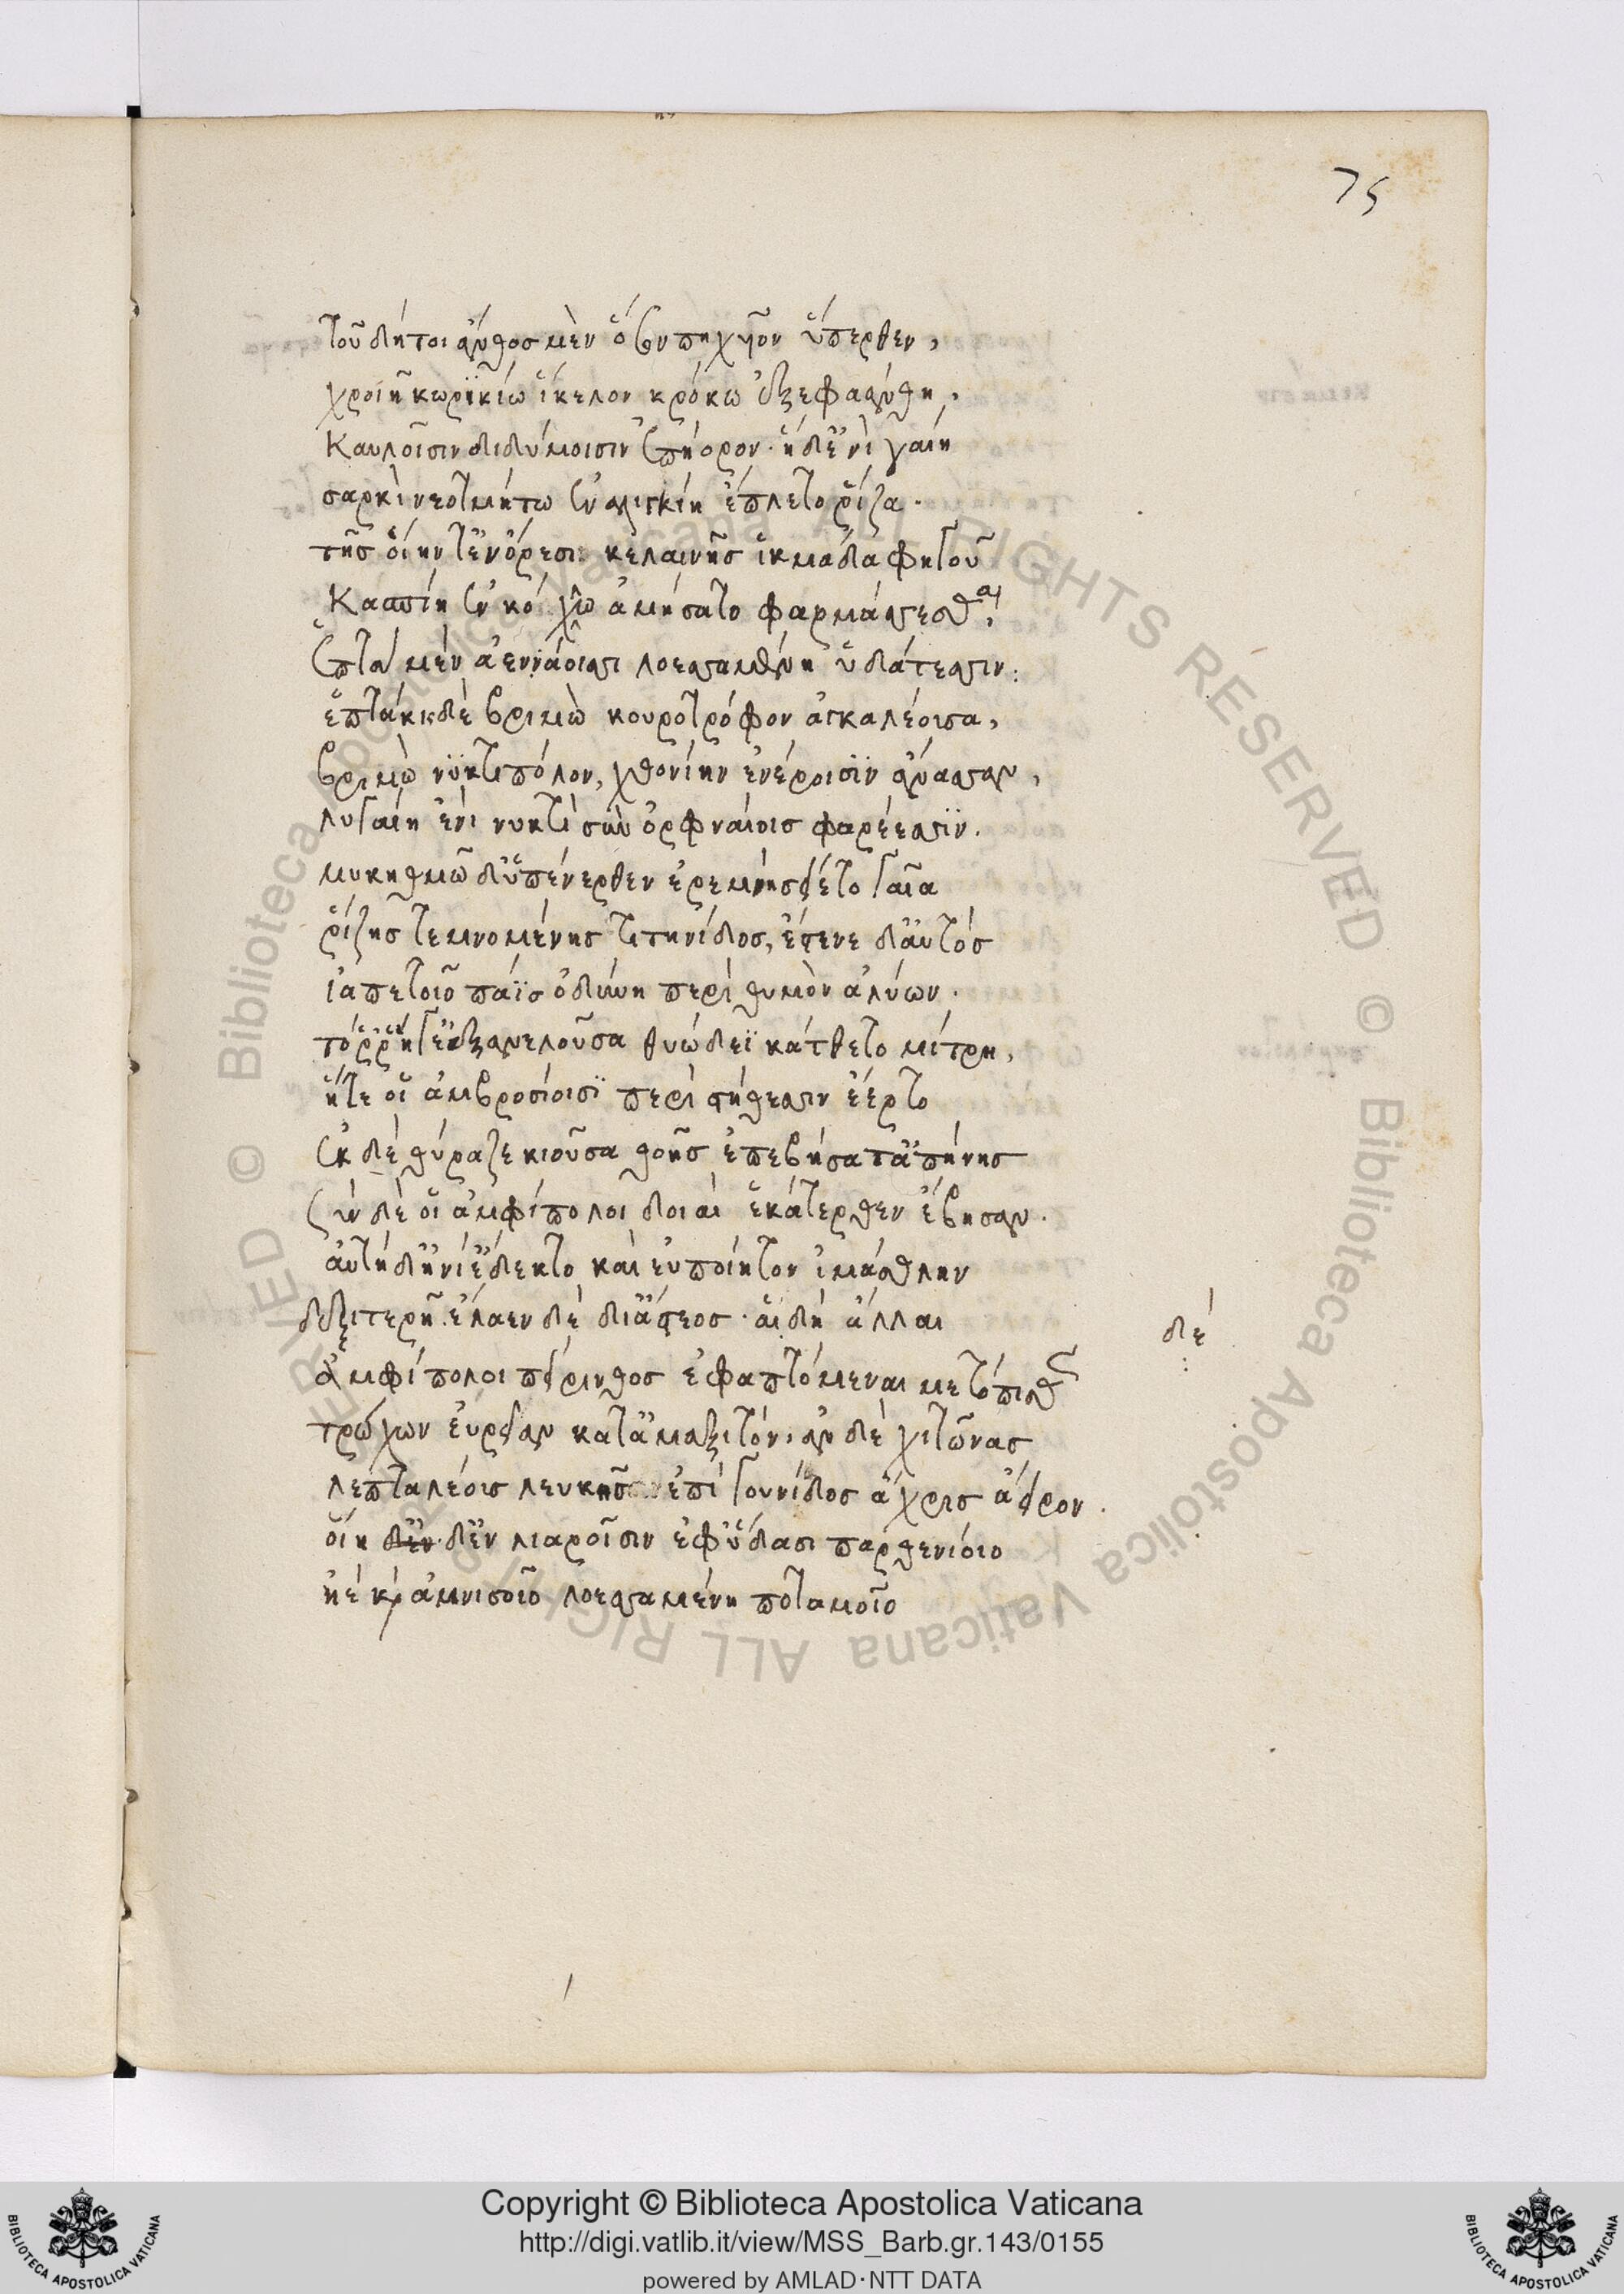 75
τοῦ δήτοι ἄνθος μὲν ὅσον πηχυῖον ὕπερθεν,
χροιῇ κωρυκίω ἴκελον κρόκω ἐξεφαάνθη,
καυλοῖσιν διδύμοισιν ἐπήορον· ἡ δ' ἐνὶ γαίη
σαρκὶ νεοτμήτω ἐναλιγκίη ἔπλετο ῥίζα.
τῆς οἵην τ' ἐν ὄρεσι κελαινῆς ἰκμάδα φηγοῦ
κασπίη ἐν κόχλω ἀμήσατο φαρμάσσεσθαι
ἑπτὰ μὲν ἀεννάοισι λοεσσαμένη ὑδάτεσσιν:
ἑπτάκι δὲ βριμὼ κουροτρόφον ἀγκαλέσασα,
βριμὼ νυκτιπόλον, χθονίην ἐνέροισιν ἄνασσαν,
λυγαίη ἐνὶ νυκτὶ σὺν ὀρφναίοις φαρέεσσιν.
μυκηθμῶ δ' ὑπένερθεν ἐρεμνὴ σείετο γαῖα
ῥίζης τεμνομένης τιτηνίδος, ἔστενε δ' αὐτὸς
ἰαπετοῖο πάϊς ὀδύνη περὶ θυμὸν ἀλύων.
τό ῥ' ἥγ' ἐξανελοῦσα θυώδεϊ κάτθετο μίτρη,
ἥτε οἱ ἀμβροσίοισι περὶ στήθεσσιν ἔερτο
ἐκ δὲ θύραζε κιοῦσα θοῆς ἐπεβήσατ' ἀπήνης
σὺν δὲ οἱ ἀμφίπολοι δοιαὶ ἑκάτερθεν ἔβησαν.
αὐτὴ δ' ἡνί' ἔδεκτο καὶ εὐποίητον ἱμάσθλην
δεξιτερῆ. ἔλαεν δὲ δι' ἄστεος· αἱ δὴ ἄλλαι
δέ
ἀμφίπολοι πείρινθος ἐφαπτόμεναι μετόπισθεν
τρώχων εὐρεῖαν κατ' ἀμαξιτόν, ἂν δὲ χιτῶνας
λεπταλέους λευκῆς ἐπὶ γουνίδος ἄχρις ἄειρον.
οἵη δ' ἐν λιαροῖσιν ἐφ' ὕδασι παρθενίοιο
ἠὲ καὶ ἀμνισοῖο λοεσσαμένη ποταμοῖο
Copyright © Biblioteca Apostolica Vaticana
http://digi.vatlib.it/view/MSS_Barb.gr.143/0155
powered by AMLAD·NTT DATA